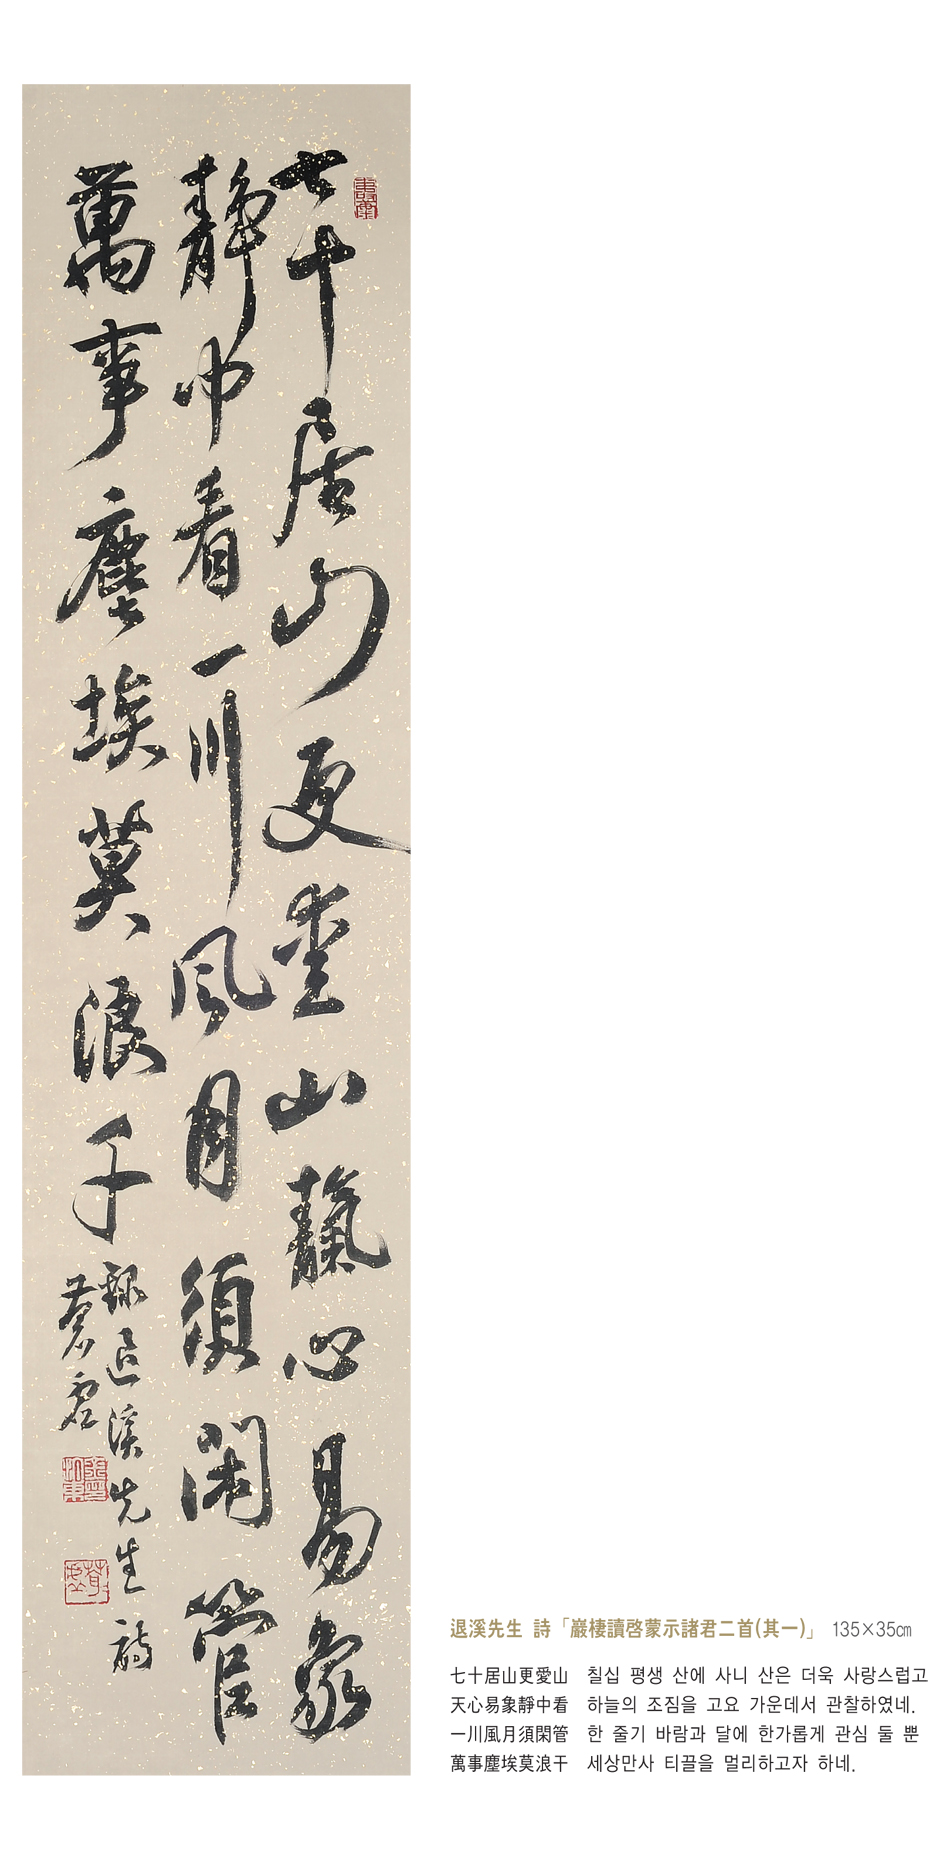 七十居山更愛山靝心易象
靜中看一川風月須閑管
萬事塵埃莫浪干
錄退溪先生詩
蒼
退溪先生 詩「巖棲讀啓蒙示諸君二首(其一)」 135×35㎝
七十居山更愛山 칠십 평생 산에 사니 산은 더욱 사랑스럽고
天心易象靜中看 하늘의 조짐을 고요 가운데서 관찰하였네.
一川風月須閑管 한 줄기 바람과 달에 한가롭게 관심 둘 뿐
萬事塵埃莫浪干 세상만사 티끌을 멀리하고자 하네.